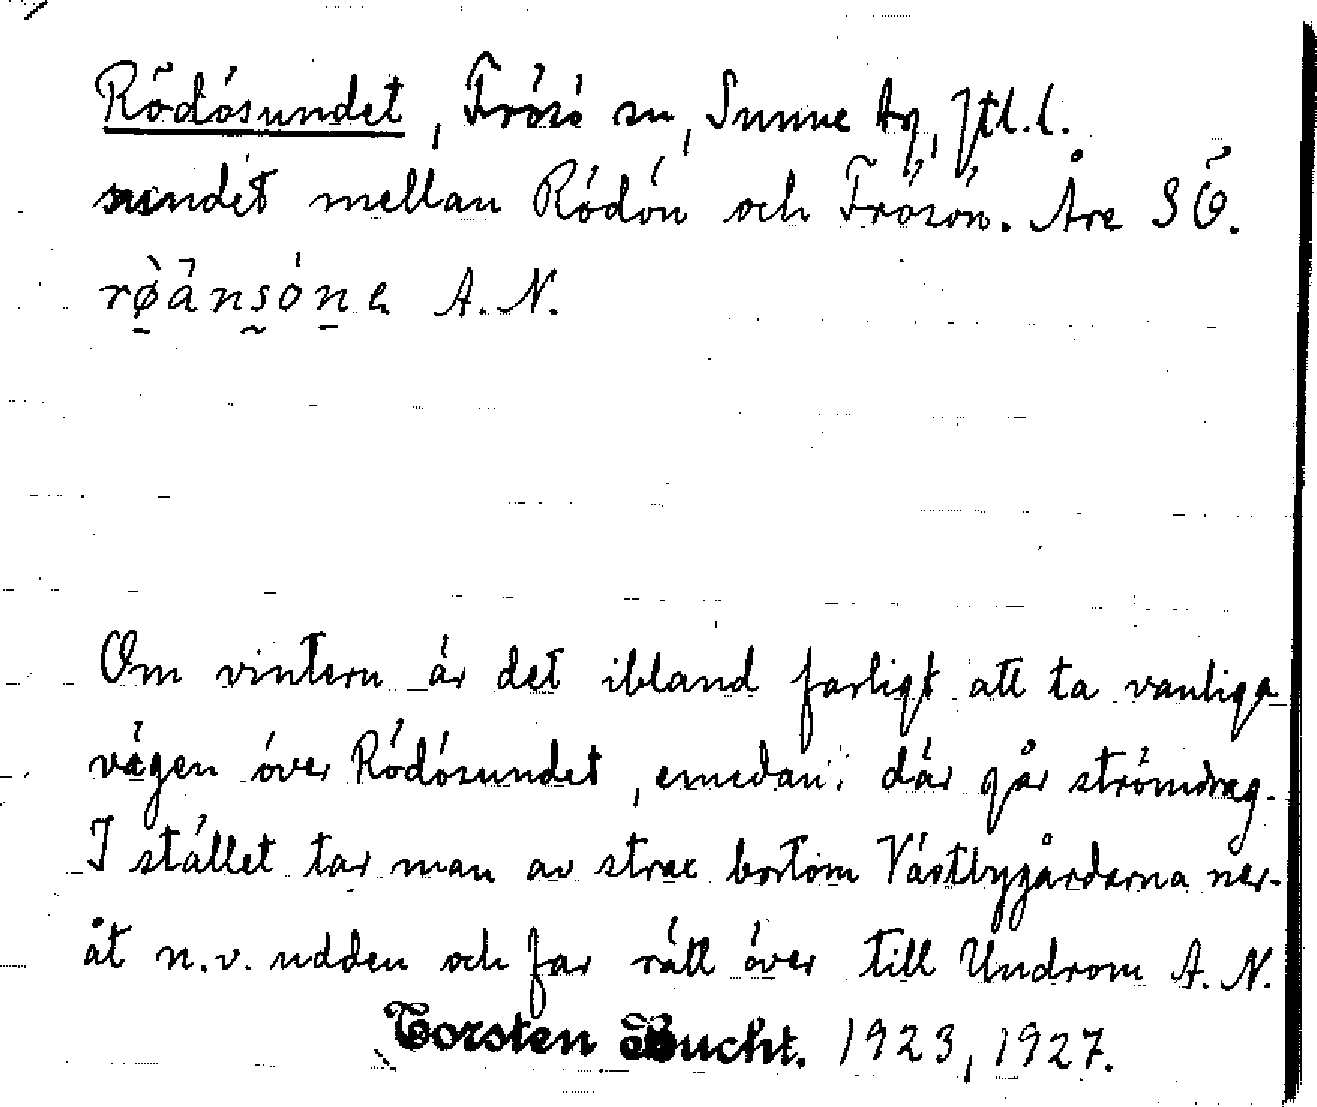 Rödösundet, Frösö sn, Sunne tg, Jtl. l.
sundet mellan Rödön och Frösön. Åre SÖ.
A. N.
Om vintern är det ibland farligt att ta vanliga
vägen över Rödösundet, emedan där går strömdrag.
I stället tar man av strax bortom Västbygårdarna ner-
åt n.v. udden och far rätt över till Undrom A. N.
Torsten Bucht. 1923, 1927.